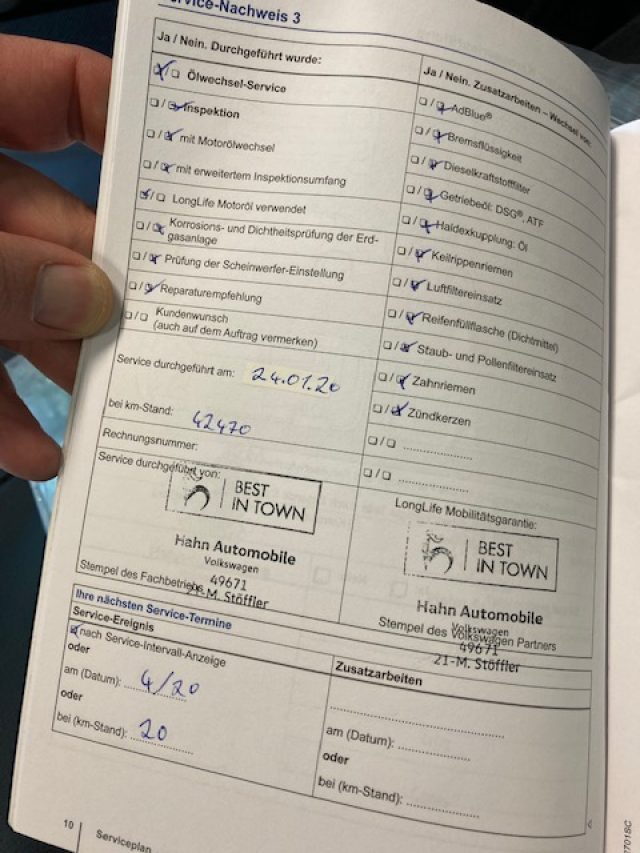 ervice-Nachweis 3
Ja / Nein. Durchgeführt wurde:
☒/☐ Ölwechsel-Service
☐/☒ Inspektion
☐/☒ mit Motorölwechsel
☐/☒ mit erweitertem Inspektionsumfang
☒/☐ LongLife Motoröl verwendet
☐/☒ Korrosions- und Dichtheitsprüfung der Erd-
gasanlage
☐/☒ Prüfung der Scheinwerfer-Einstellung
☐/☒ Reparaturempfehlung
☐/☐ Kundenwunsch
(auch auf dem Auftrag vermerken)
Service durchgeführt am: 24.01.20
bei km-Stand: 42470
Rechnungsnummer:
Service durchgeführt von:
BEST
IN TOWN
Hahn Automobile
Volkswagen
49671
21-M. Stöffler
Stempel des Fachbetriebs
Ja / Nein. Zusatzarbeiten – Wechsel von:
☐/☒ AdBlue®
☐/☒ Bremsflüssigkeit
☐/☒ Dieselkraftstofffilter
☐/☒ Getriebeöl: DSG®, ATF
☐/☒ Haldexkupplung: Öl
☐/☒ Keilrippenriemen
☐/☒ Luftfiltereinsatz
☐/☒ Reifenfüllflasche (Dichtmittel)
☐/☒ Staub- und Pollenfiltereinsatz
☐/☒ Zahnriemen
☐/☒ Zündkerzen
☐/☐ ....................
☐/☐ ....................
LongLife Mobilitätsgarantie:
BEST
IN TOWN
Hahn Automobile
Volkswagen
Stempel des Volkswagen Partners
49671
21-M. Stöffler
Ihre nächsten Service-Termine
Service-Ereignis
☒ nach Service-Intervall-Anzeige
oder
am (Datum): 4/20
oder
bei (km-Stand): 20
Zusatzarbeiten
..................................................
am (Datum): ....................
oder
bei (km-Stand): ....................
10 | Serviceplan